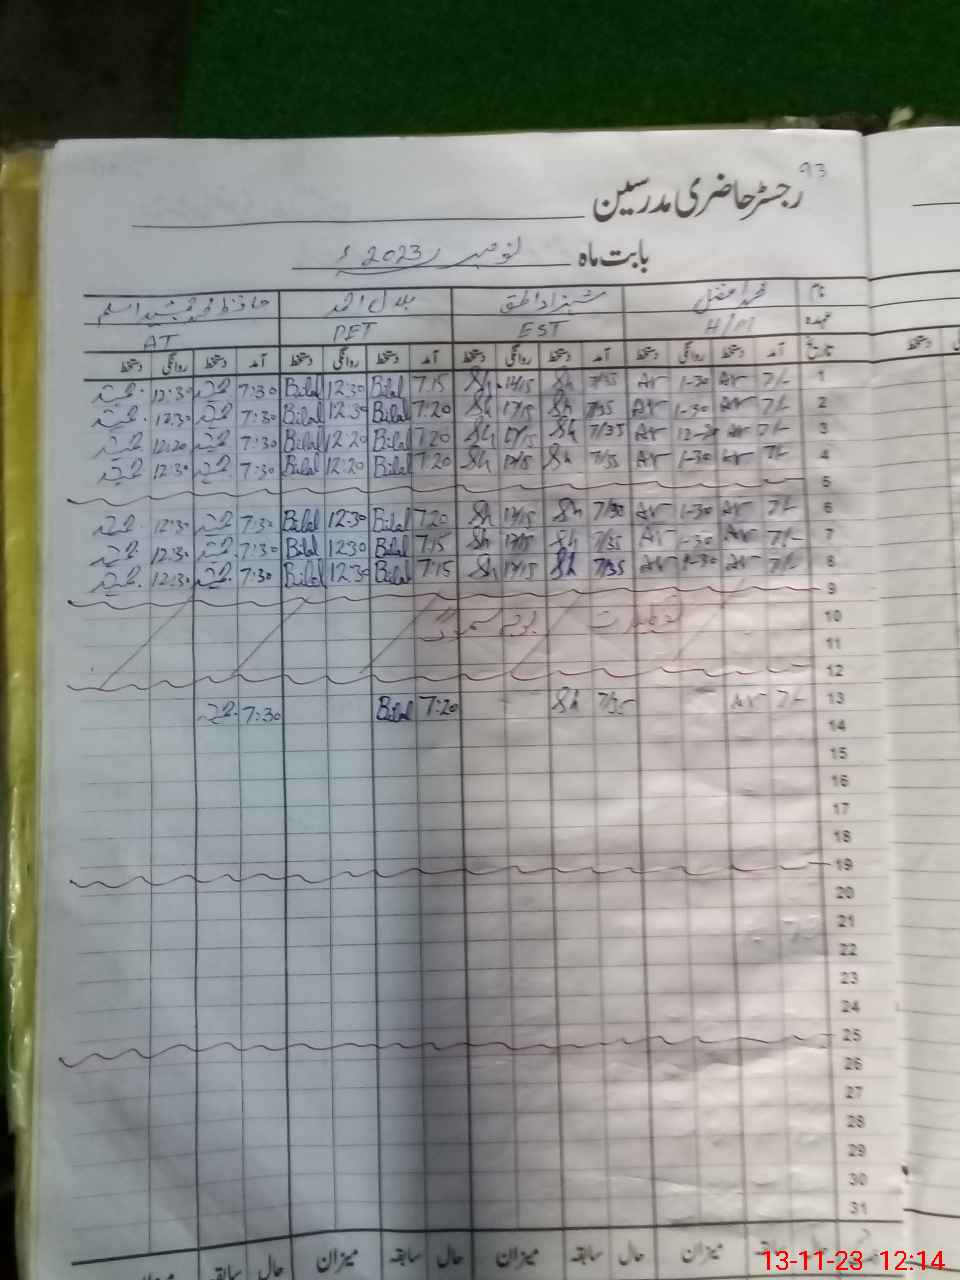 93
رجسٹر حاضری مدرسین
بابت ماہ نومبر 2023ء
نام محمد افضل شہزاد بلال احمد حافظ محمد جمشید اسلم
عہدہ H/M EST PET AT
تاریخ آمد دستخط روانگی دستخط آمد دستخط روانگی دستخط آمد دستخط روانگی دستخط آمد دستخط روانگی دستخط
1 7/- Ar 1-30 Ar 7/35 Sh Sh 7:15 Bilal 12:30 Bilal 7:30 12:30
2 7/- Ar 1-30 Ar 7/35 Sh Sh 7:20 Bilal 12:30 Bilal 7:30 12:30
3 7/- Ar Ar 7/35 Sh Sh 7:20 Bilal 12:20 Bilal 7:30 12:20
4 7/- Ar 1-30 Ar 7/35 Sh Sh 7:20 Bilal 12:20 Bilal 7:30 12:30
5
6 7/- Ar 1-30 Ar 7/30 Sh Sh 7:20 Bilal 12:30 Bilal 7:30 12:30
7 7/- Ar 1-30 Ar 7/35 Sh Sh 7:15 Bilal 12:30 Bilal 7:30 12:30
8 7/- Ar 1-30 Ar 7/35 Sh Sh 7:15 Bilal 12:30 Bilal 7:30 12:30
9
10 تعطیلات بوجہ سموگ
11
12
13 7/- Ar 7/35 Sh 7:20 Bilal 7:30
14
15
16
17
18
19
20
21
22
23
24
25
26
27
28
29
30
31
میزان حال سابقہ میزان حال سابقہ میزان حال سابقہ
13-11-23 12:14